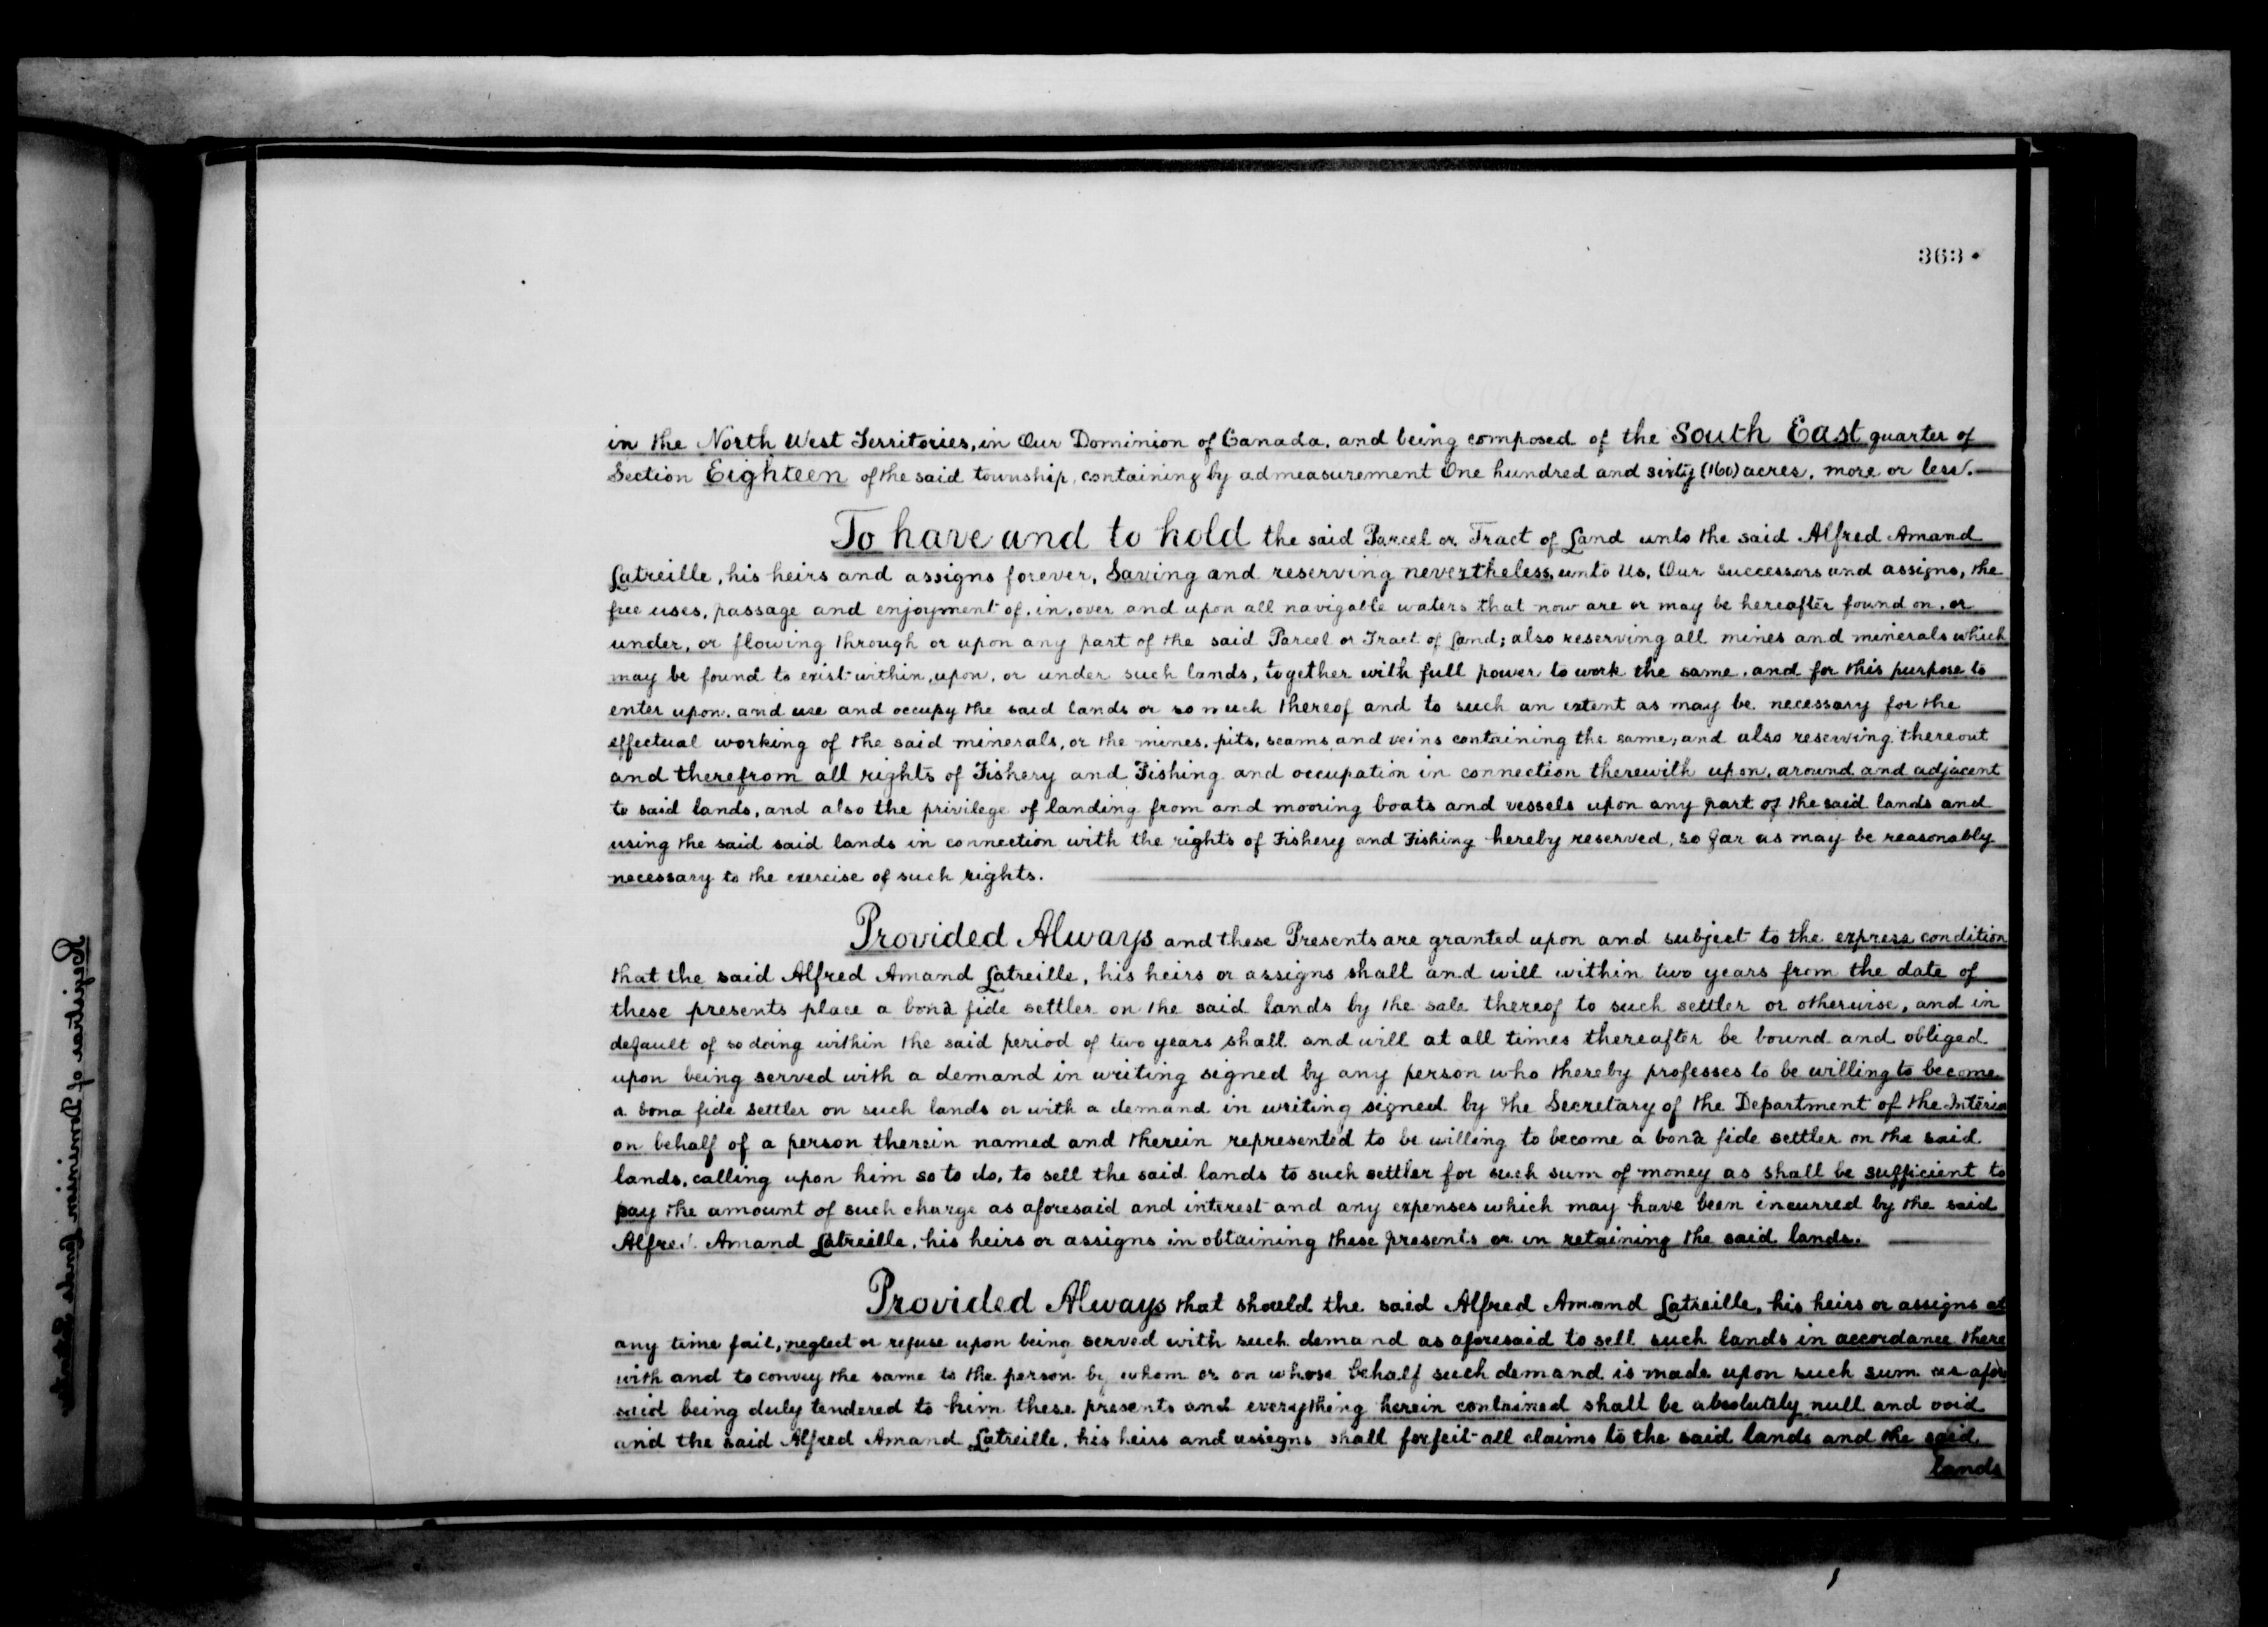 363.
in the North West Territories, in Our Dominion of Canada, and being composed of the South East quarter of
Section Eighteen of the said township, containing by admeasurement One hundred and sixty (160) acres, more or less.
To have and to hold the said Parcel or Tract of Land unto the said Alfred Amand
Latreille, his heirs and assigns forever, Saving and reserving nevertheless, unto Us, Our Successors and assigns, the
free uses, passage and enjoyment of, in, over and upon all navigable waters that now are or may be hereafter found on, or
under, or flowing through or upon any part of the said Parcel or Tract of Land; also reserving all mines and minerals which
may be found to exist within, upon, or under such lands, together with full power to work the same, and for this purpose to
enter upon, and use and occupy the said lands or so much thereof and to such an extent as may be necessary for the
effectual working of the said minerals, or the mines, pits, seams and veins containing the same; and also reserving thereout
and therefrom all rights of Fishery and Fishing and occupation in connection therewith upon, around and adjacent
to said lands, and also the privilege of landing from and mooring boats and vessels upon any part of the said lands and
using the said said lands in connection with the rights of Fishery and Fishing hereby reserved, so far as may be reasonably
necessary to the exercise of such rights.
Provided Always and these Presents are granted upon and subject to the express condition
that the said Alfred Amand Latreille, his heirs or assigns shall and will within two years from the date of
these presents place a bonâ fide settler on the said lands by the sale thereof to such settler or otherwise, and in
default of so doing within the said period of two years shall and will at all times thereafter be bound and obliged
upon being served with a demand in writing signed by any person who thereby professes to be willing to become
a bona fide settler on such lands or with a demand in writing signed by the Secretary of the Department of the Interior
on behalf of a person therein named and therein represented to be willing to become a bonâ fide settler on the said
lands, calling upon him so to do, to sell the said lands to such settler for such sum of money as shall be sufficient to
pay the amount of such charge as aforesaid and interest and any expenses which may have been incurred by the said
Alfred Amand Latreille, his heirs or assigns in obtaining these presents or in retaining the said lands.
Provided Always that should the said Alfred Amand Latreille, his heirs or assigns at
any time fail, neglect or refuse upon being served with such demand as aforesaid to sell such lands in accordance there
with and to convey the same to the person by whom or on whose behalf such demand is made upon such sum as afore
said being duly tendered to him these presents and everything herein contained shall be absolutely null and void
and the said Alfred Amand Latreille, his heirs and assigns shall forfeit all claims to the said lands and the said
lands
Registrar of Dominion Lands Patents